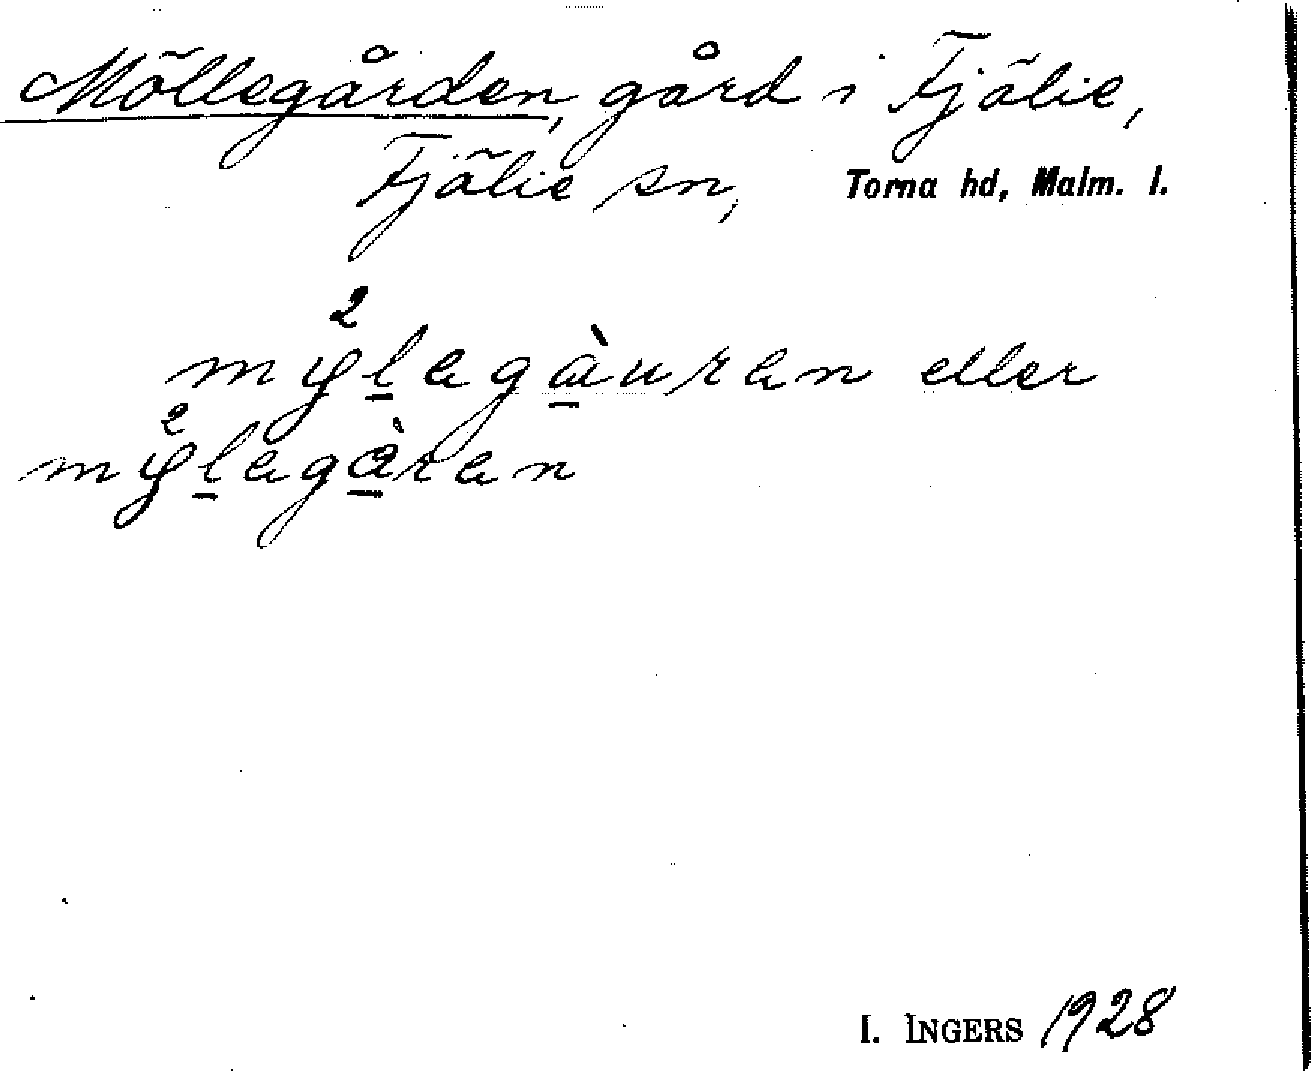 Möllegården, gård i Fjälie,
Fjälie sn, Torna hd, Malm. l.
mÿ²lagàuran eller
mÿ²lagàran
I. INGERS 1928